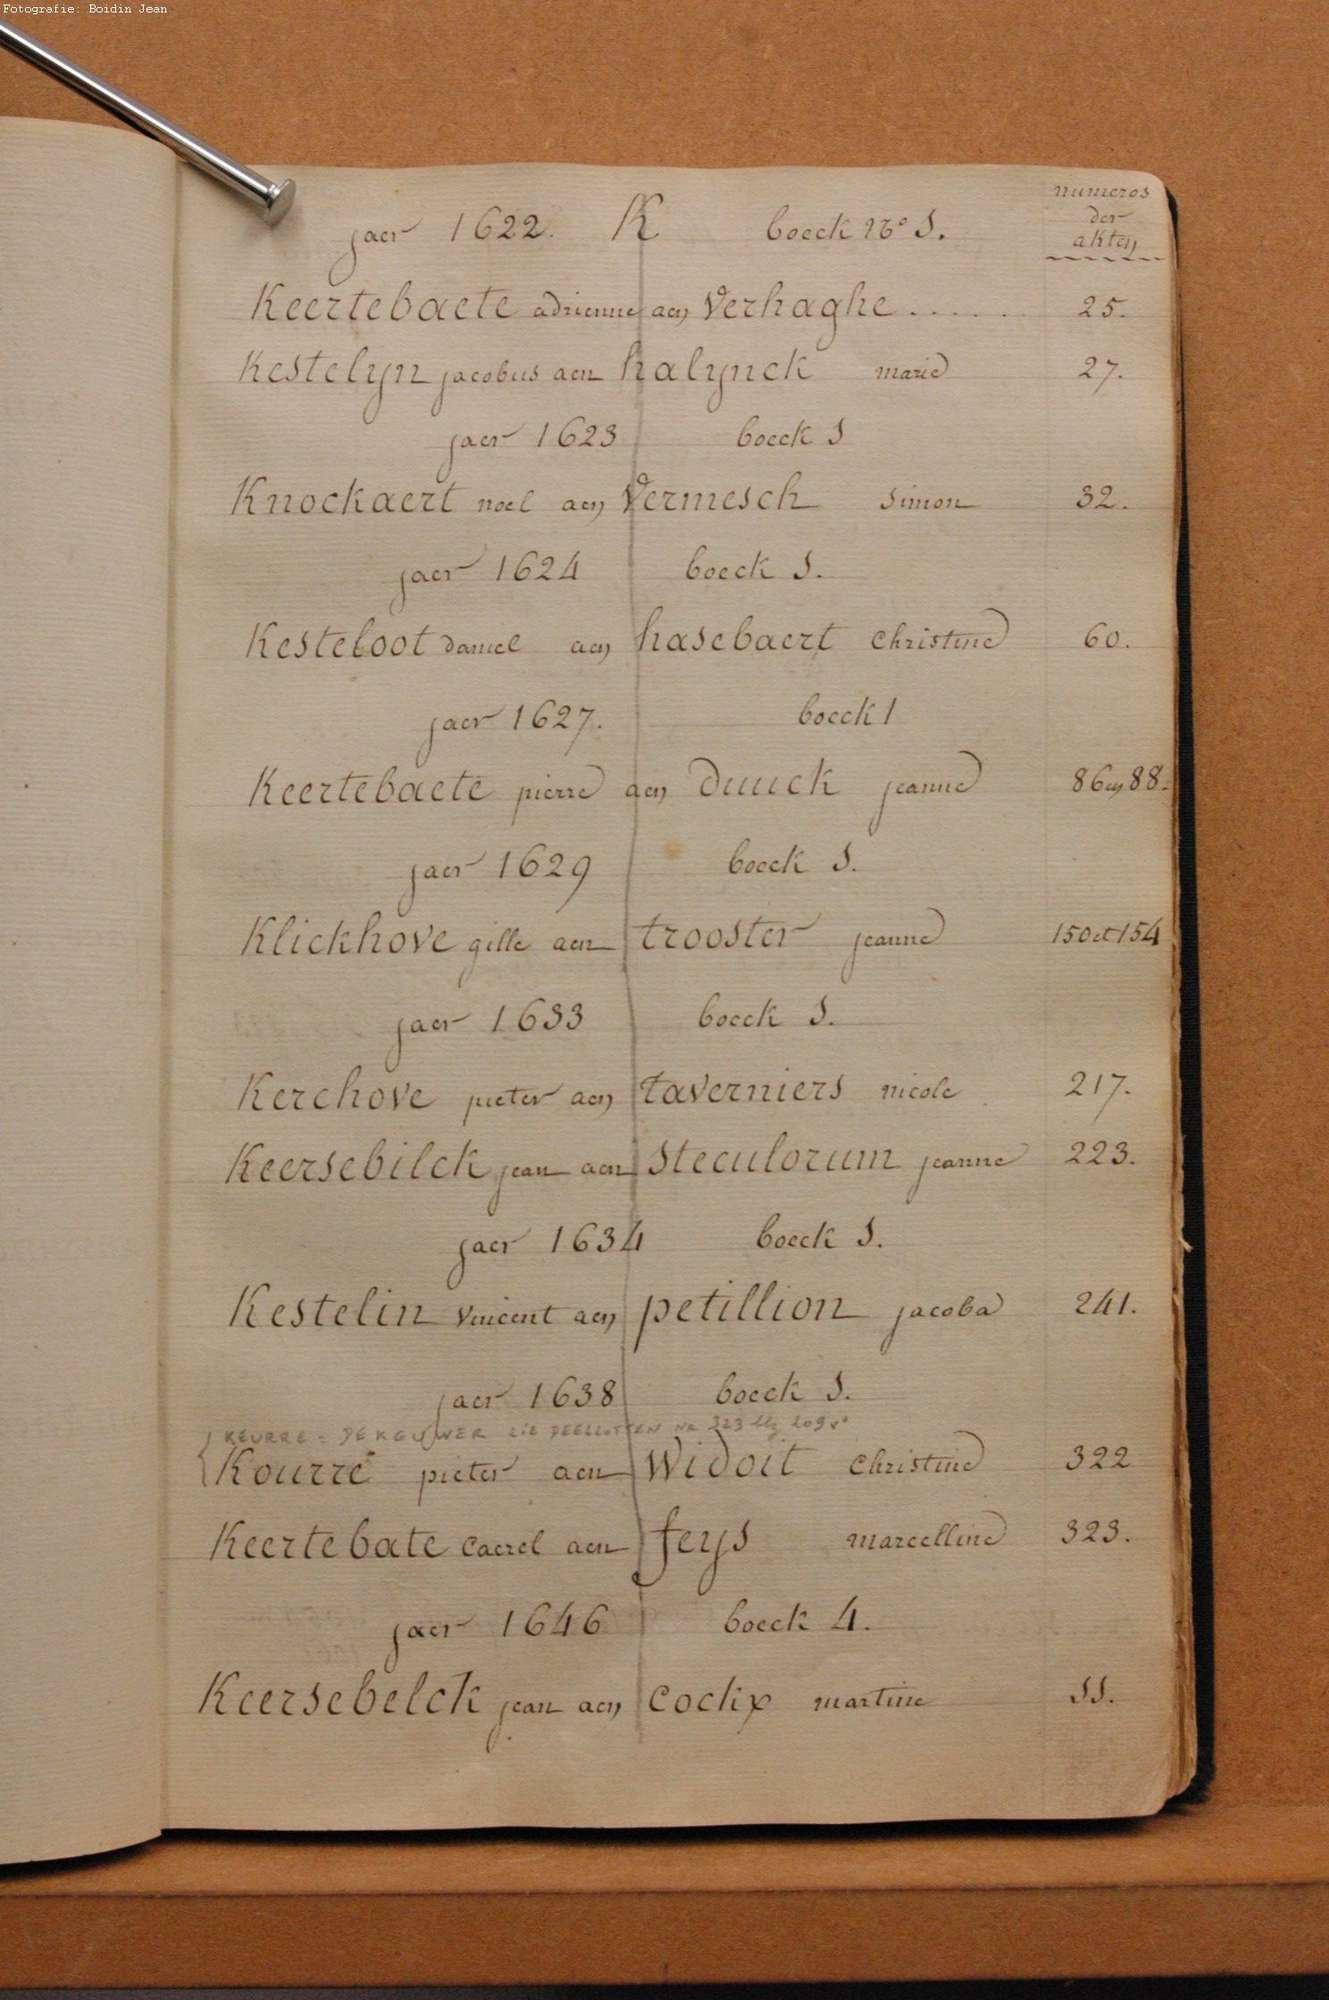 Fotografie: Boidin Jean
numeros
der
akten
jaer 1622. K boeck No 1.
Keertebaete adrienne aen Verhaghe ..... 25.
Kestelyn jacobus aen halynck marie 27.
jaer 1623 boeck 1
Knockaert noel aen Vermesch simon 32.
jaer 1624 boeck 1.
Kesteloot daniel aen hasebaert christine 60.
jaer 1627. boeck 1
Keertebaete pierre aen duuck jeanne 86 en 88.
jaer 1629 boeck 1.
Klickhove gille aen trooster jeanne 150 et 154
jaer 1633 boeck 1.
Kerchove pieter aen taverniers nicole 217.
Keersebilck jean aen steculorum jeanne 223.
jaer 1634 boeck 1.
Kestelin Vincent aen petillion jacoba 241.
jaer 1638 boeck 1.
KEURRE = DE KEUWER zie DEELLOTTEN NR 323 blz 209 v°
Kourre pieter aen Widoit christine 322
Keertebate Caerel aen feys marcelline 323.
jaer 1646 boeck 4.
Keersebelck jean aen Cockx martine 11.